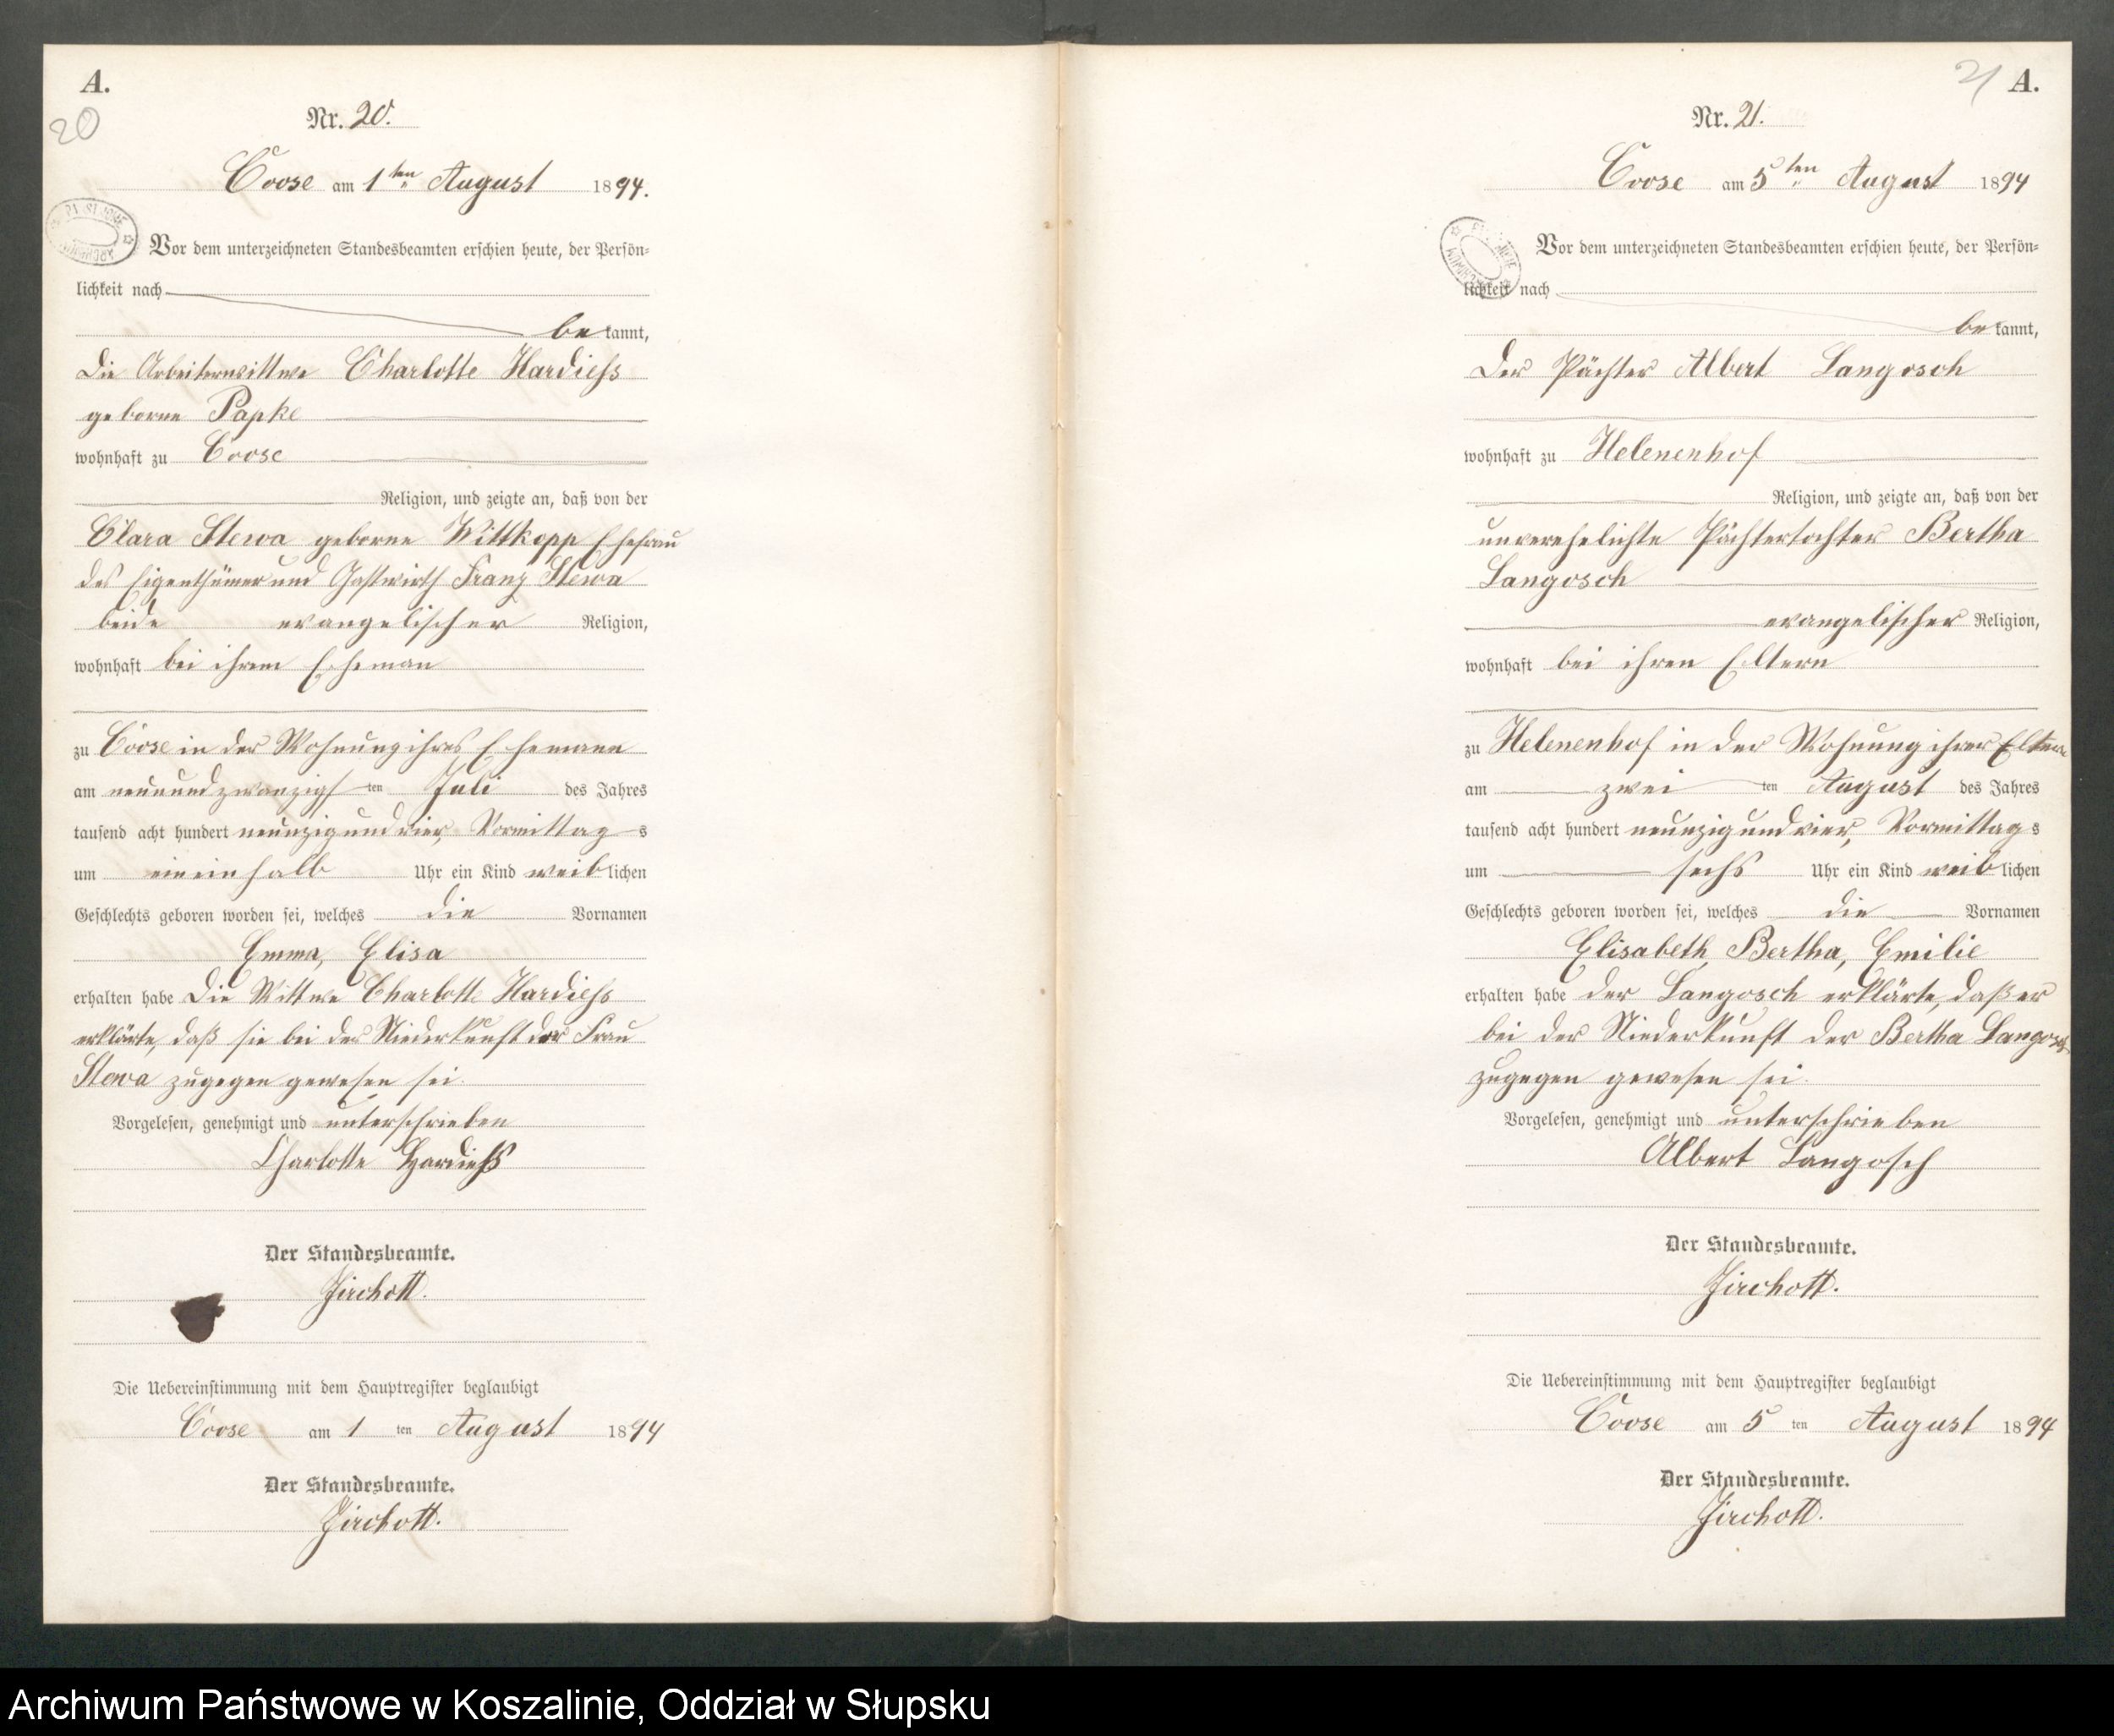 A.
20
Nr. 20.
Coose am 1ten August 1894.
Vor dem unterzeichneten Standesbeamten erschien heute, der Persön-
lichkeit nach
bekannt,
die Arbeiterwittwe Charlotte Hardiess
geborne Papke
wohnhaft zu Coose
Religion, und zeigte an, daß von der
Clara Stewa geborne Wittkopp Ehefrau
des Eigenthümer und Gastwirth Franz Stewa
beide evangelischer Religion,
wohnhaft bei ihrem Eheman
zu Coose in der Wohnung ihres Ehemann
am neunundzwanzigsten Juli des Jahres
tausend acht hundert neunzigundvier, Vormittags
um eineinhalb Uhr ein Kind weiblichen
Geschlechts geboren worden sei, welches die Vornamen
Emma, Elisa
erhalten habe Die Wittwe Charlotte Hardiess
erklärte, daß sie bei der Niederkunft der Frau
Stewa zugegen gewesen sei.
Vorgelesen, genehmigt und unterschrieben
Charlotte Hardiess
Der Standesbeamte.
Zirchott.
Die Uebereinstimmung mit dem Hauptregister beglaubigt
Coose am 1 ten August 1894
Der Standesbeamte.
Zirchott.
21 A.
Nr. 21.
Coose am 5ten August 1894
Vor dem unterzeichneten Standesbeamten erschien heute, der Persön-
lichkeit nach
bekannt,
Der Pächter Albert Langosch
wohnhaft zu Helenenhof
Religion, und zeigte an, daß von der
unverehelichte Pächtertochter Bertha
Langosch
evangelischer Religion,
wohnhaft bei ihren Eltern
zu Helenenhof in der Wohnung ihrer Eltern
am zwei ten August des Jahres
tausend acht hundert neunzigundvier, Vormittags
um sechs Uhr ein Kind weiblichen
Geschlechts geboren worden sei, welches die Vornamen
Elisabeth, Bertha, Emilie
erhalten habe der Langosch erklärte, daß er
bei der Niederkunft der Bertha Langosch
zugegen gewesen sei.
Vorgelesen, genehmigt und unterschrieben
Albert Langosch
Der Standesbeamte.
Zirchott.
Die Uebereinstimmung mit dem Hauptregister beglaubigt
Coose am 5 ten August 1894
Der Standesbeamte.
Zirchott.
Archiwum Państwowe w Koszalinie, Oddział w Słupsku